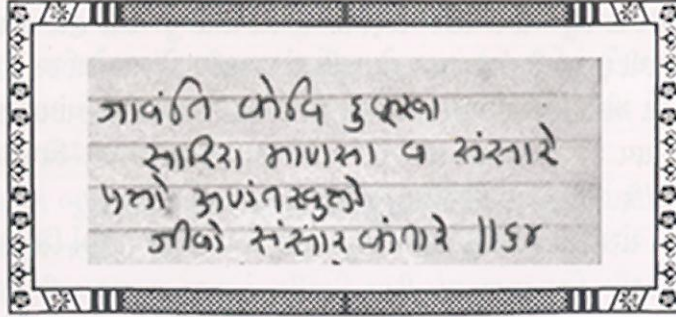 जावंति केदि दुक्खा
सारिरा माणसा व संसारे
पत्तो अणंतखुत्तो
जीवो संसार कंतारे ||६४